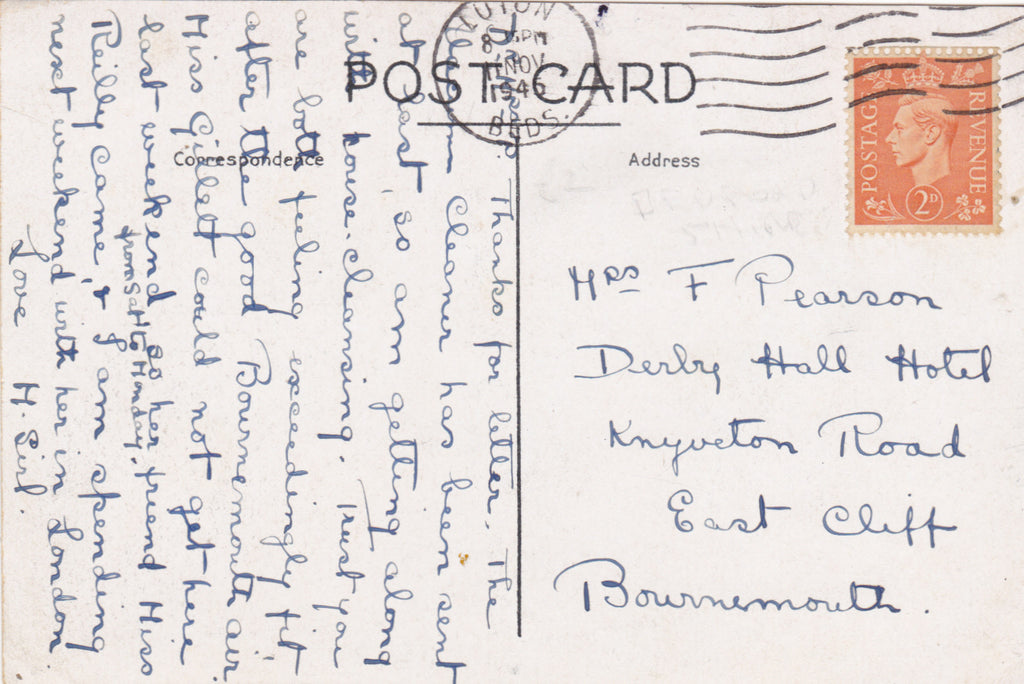 POST CARD
Correspondence
Address
LUTON
BEDS.
8 15 PM
NOV
1946
POSTAGE REVENUE
2D
Thanks for letter. The
Cleaner has been sent
at last so am getting along
with house-cleansing. Trust you
are both feeling exceedingly fit
after the good Bournemouth air
Miss Gillet could not get here
last weekend so her friend Miss
from Sat to Monday.
Reilly came, & I am spending
next weekend with her in London
Love H. Sirl.
Mrs F Pearson
Derby Hall Hotel
Knyveton Road
East Cliff
Bournemouth.